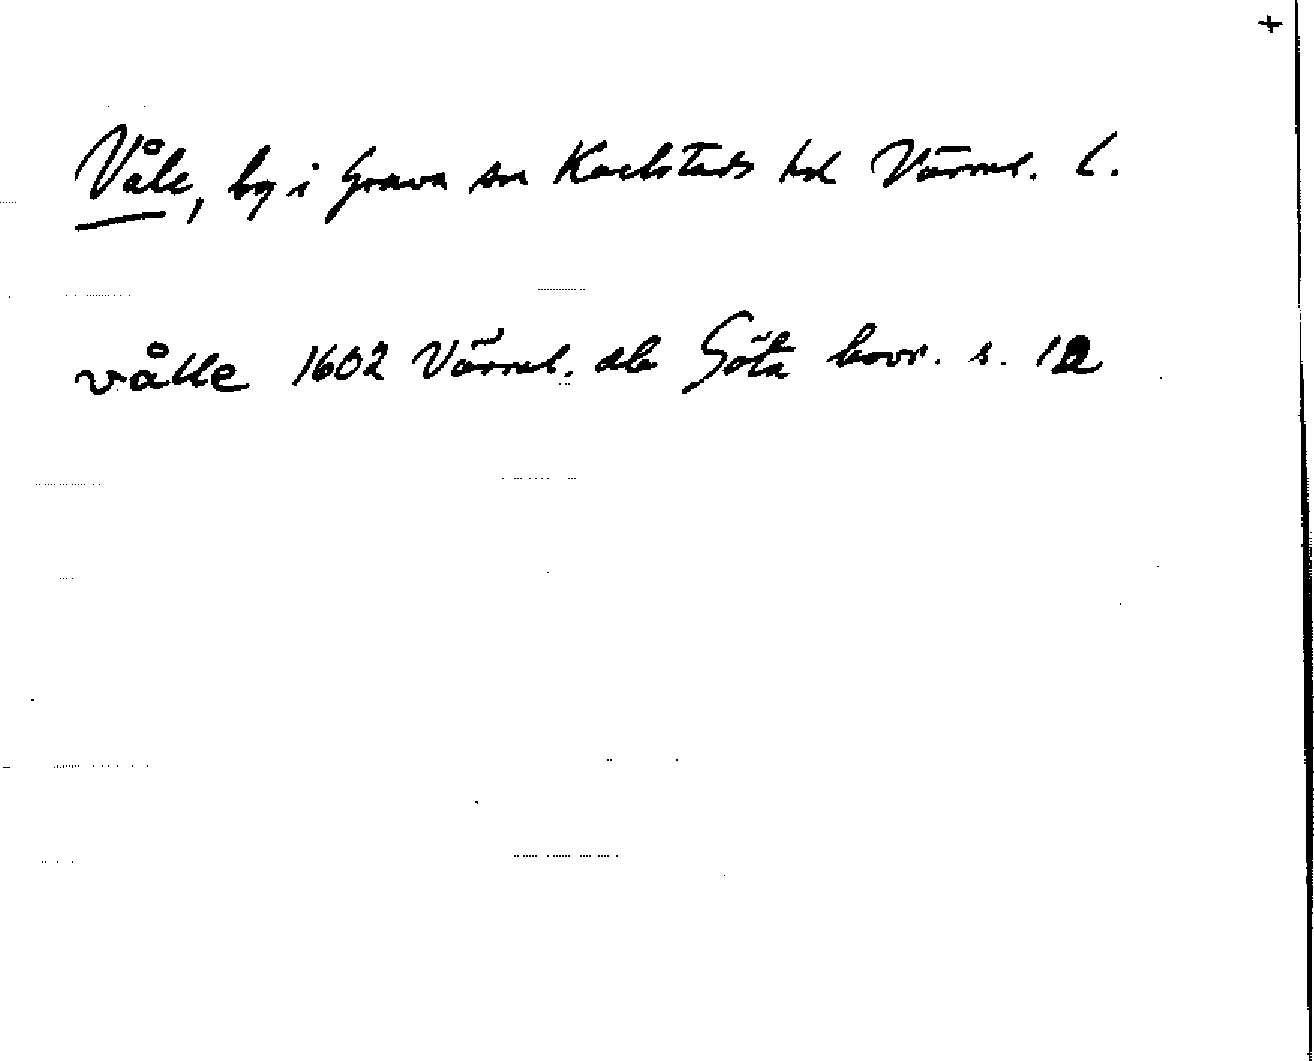 +
Våle, by i Grava sn Karlstads hd Värml. l.
vålle 1602 Värml. db Göta hovr. s. 12